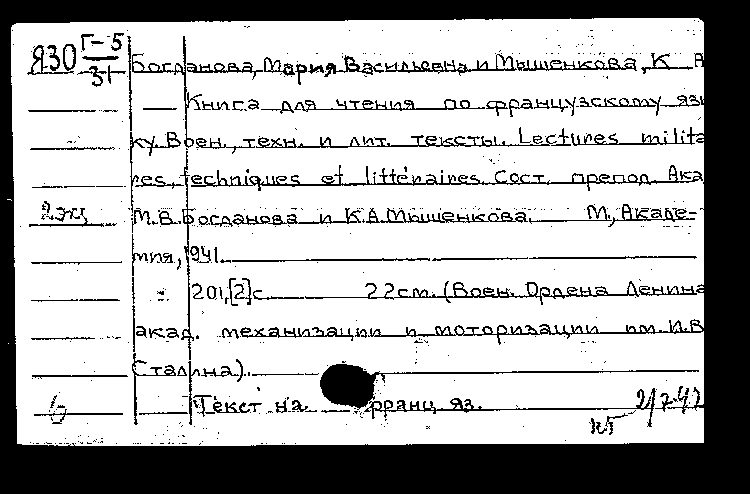 Я30 Г-5
31
Богданова, Мария Васильевна и Мышенкова, К А
Книга для чтения по французскому язы
ку. Воен., техн. и лит. тексты. Lectures milita
res, techniques et littéraires. Сост. препод. Ака
2 экз М.В.Богданова и К.А.Мышенкова. М., Акаде-
мия, 1941.
201,[2]с. 22см. (Воен. Ордена Ленина
акад. механизации и моторизации им. И.В
Сталина).
6 Текст на франц. яз.